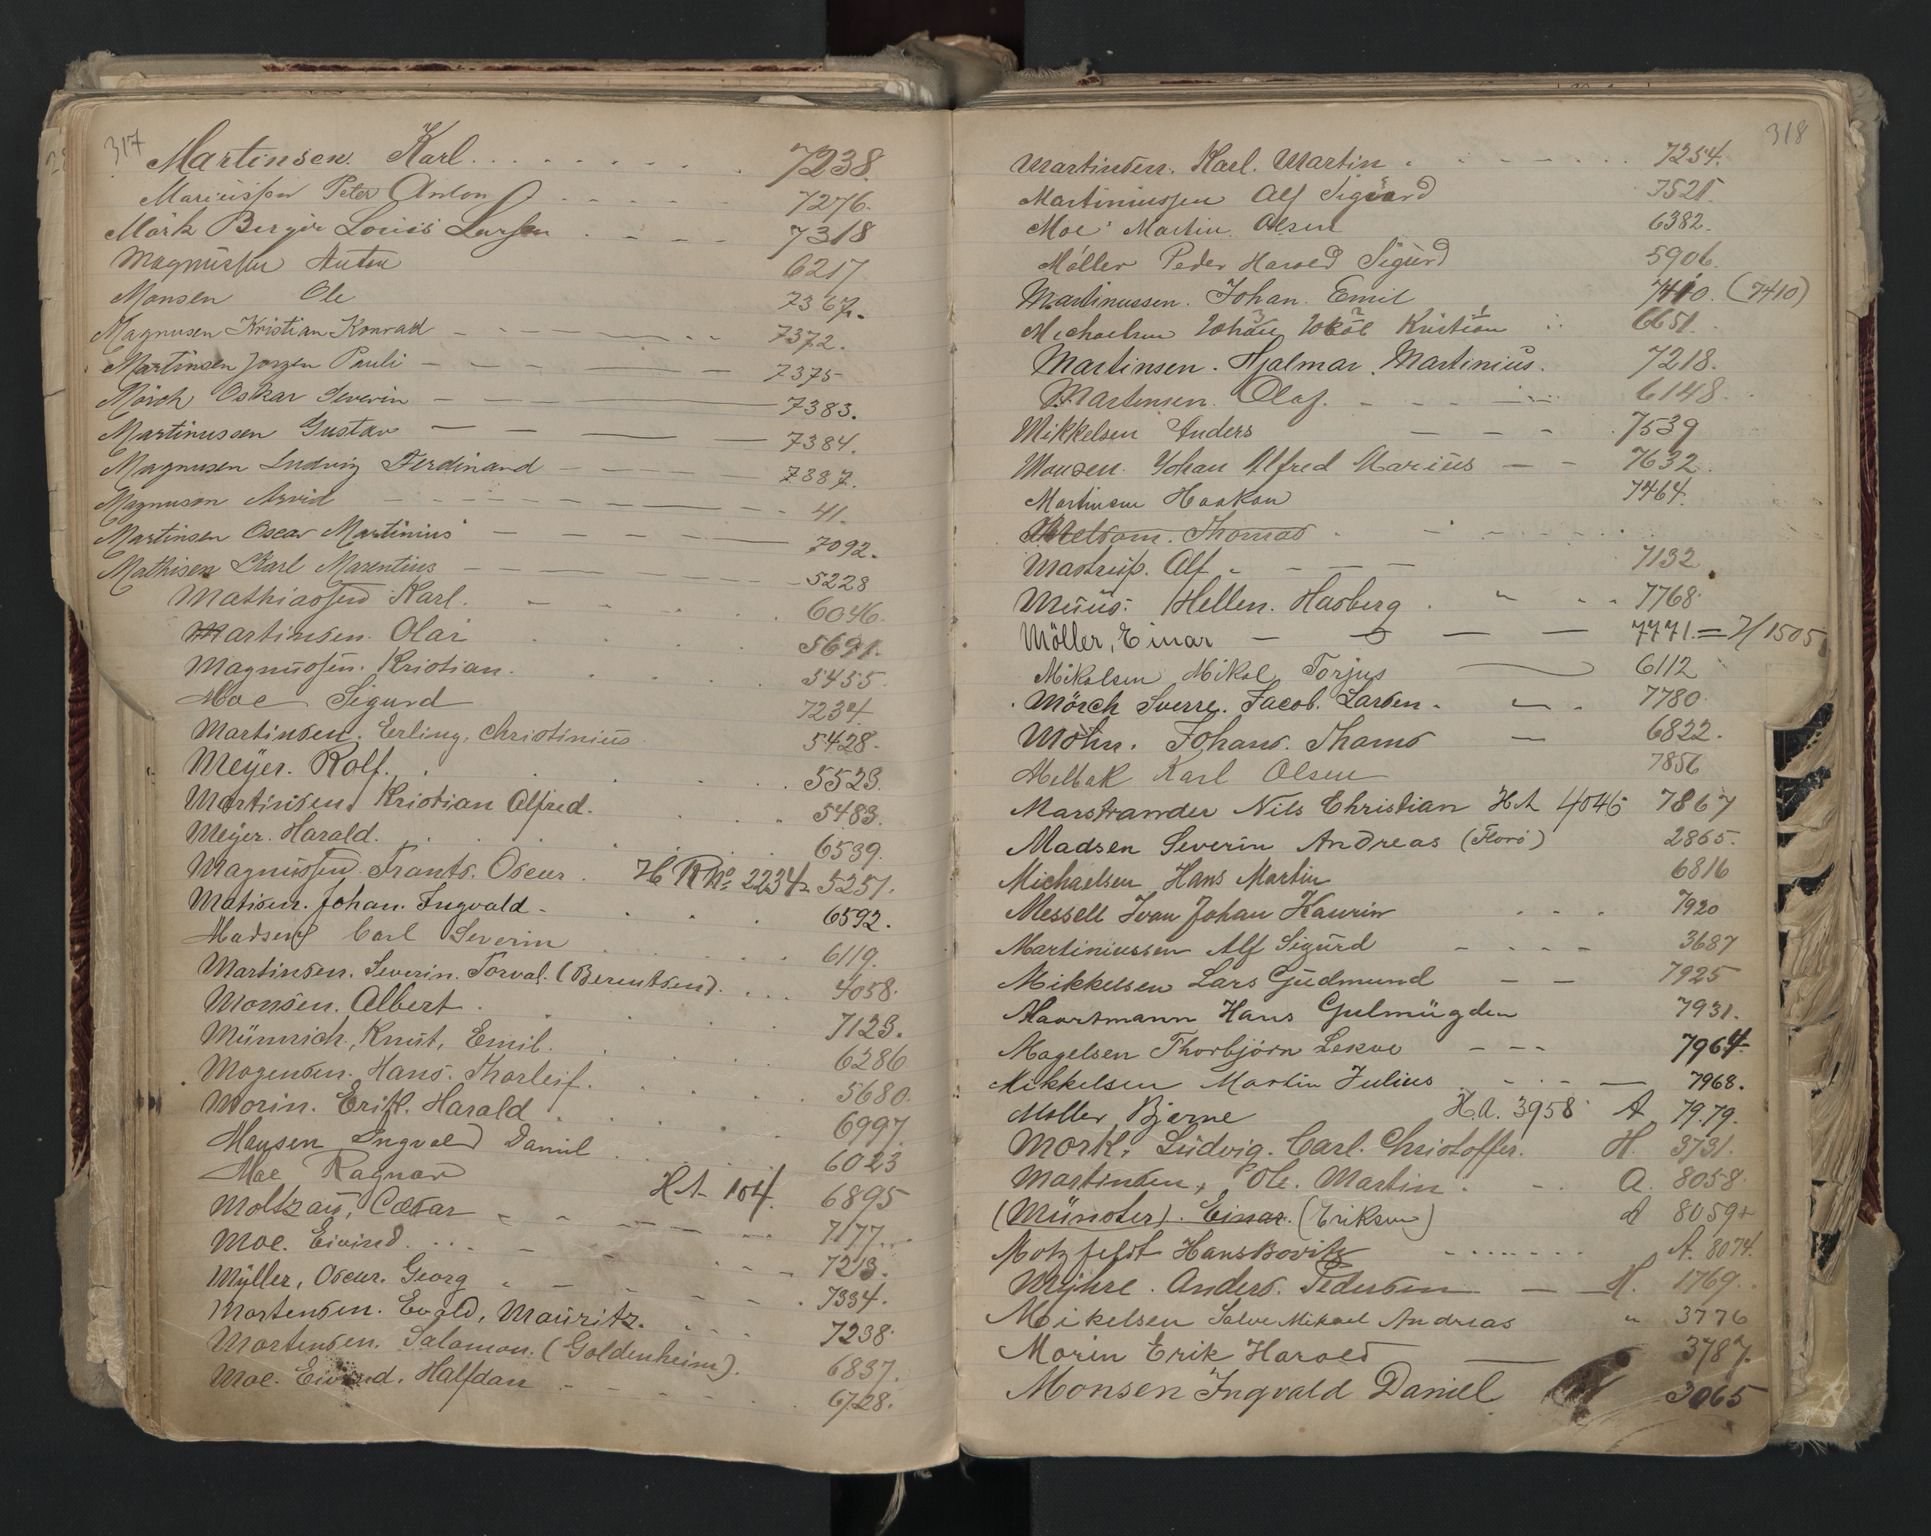 317
Martinsen. Karl. 7238.
Mariussen Peter Anton 7276.
Mörk Berger Louis Larsen 7318
Magnussen Anton 6217.
Monsen Ole 7367.
Magnusen Kristian Konrad 7372.
Martinsen Jorgen Pauli 7375
Mörch Oskar Severin 7383.
Martinussen Gustav 7384.
Magnusen Ludvig Ferdinand 7387.
Magnusen Arvid 41.
Martinsen Oscar Martinius 7092.
Mathisen Karl Marentius 5228
Mathiassen Karl. 6046.
Martinsen. Olai 5691.
Magnussen. Kristian. 5455.
Moe Sigurd 7234.
Martinsen. Erling. Christinius 5428.
Meyer. Rolf. 5523.
Martinsen. Kristian Alfred. 5483.
Meyer. Harald. 6539.
Magnussen Frants. Oscar. H R No 2234 5251.
Matisen. Johan. Ingvald 6592.
Madsen Carl Severin 6119.
Martinsen. Severin. Torval. (Berentsen). 4058.
Monsen. Albert. 7123.
Münnich, Knut, Emil. 6286
Mogensen. Hans. Thorleif. 5680.
Morin. Erik. Harald 6997.
Monsen Ingvald Daniel 6023
Moe Ragnar 6895
Moltzau, Cæsar HA 104. 7177
Moe. Eivind. 7213.
Mÿller, Oscar. Georg 7334.
Mortensen. Evald, Mauritz. 7238.
Mortensen. Salamon. (Goldenheim). 6837.
Moe. Eivind. Halfdan 6728.
318
Martinsen. Karl. Martin 7254.
Martiniussen Alf Sigurd 7521.
Moe Martin Olsen 6382.
Möller Peder Harald Sigurd 5906.
Martinussen. Johan. Emil 7410. (7410)
Michaelsen Johan Kristian 6651.
Martinsen. Hjalmar. Martinius. 7218.
Martensen. Olaf. 6148.
Mikkelsen Anders 7539
Monsen. Johan Alfred Marius 7632.
Martinsen Haakon 7464.
Thomas
Mastrup. Alf 7132
Muus. Hellen. Hasberg. 7768.
Möller, Einar 7771. = 7/1505
Mikalsen Mikal Torjus 6112
Mörch Sverre. Jacob. Larsen. 7780.
Möhn. Johans. Thams 6822.
Melbak Karl Olsen 7856
Marstrander Nils Christian HA 4045 7867
Madsen Severin Andreas (Florö) 2865.
Michaelsen Hans Martin 6816
Messell Ivan Johan Kaurin 7920
Martiniussen Alf Sigurd 3687
Mikkelsen Lars Gudmund 7925
Maartmann Hans Gulmügden 7931.
Magelsen Thorbjörn Lekve 7964.
Mikkelsen Martin Julius 7968.
Møller Bjarne H.A. 3958 A 7979.
Mörk. Ludvig. Carl. Christoffer. H. 3731.
Martinsen, Ole. Martin. A. 8058.
(Münster). Einar. (Eriksen) A 8059
Motzfeldt Hans Bovitz A. 8074.
Myhre. Anders. Pedersen H. 1769.
Mikelsen Salve Mikael Andreas " 3776
Morin Erik Harald 3787.
Monsen Ingvald Daniel 3065